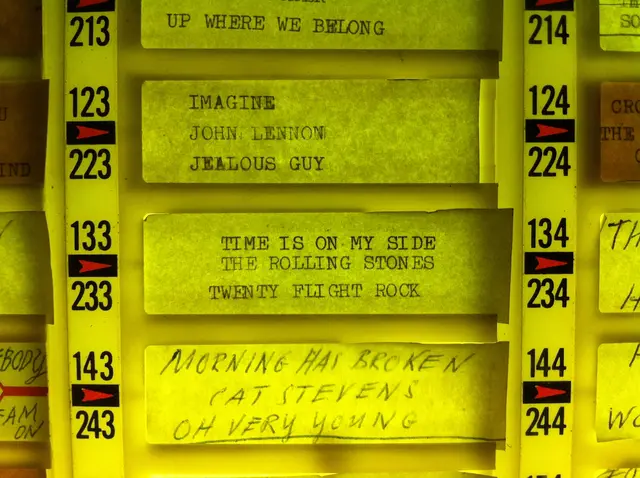 213
UP WHERE WE BELONG
214
SO
123
IMAGINE
JOHN LENNON
JEALOUS GUY
223
124
224
CRO
THE
IND
133
TIME IS ON MY SIDE
THE ROLLING STONES
TWENTY FLIGHT ROCK
233
134
234
TH
H
143
MORNING HAS BROKEN
CAT STEVENS
OH VERY YOUNG
243
144
244
EBODY
EAM
ON
WO